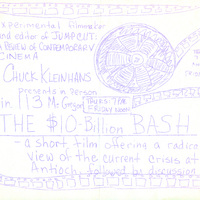 experimental filmmaker
and editor of JUMPCUT:
a Review of CONTEMPORARY
CINEMA
CHUCK KLEINHANS
presents in person
in 113 McGregor
THURS. 7PM
FRIDAY NOON
THE $10-Billion BASH
- a short film offering a radical
view of the current crisis at
Antioch, followed by discussion